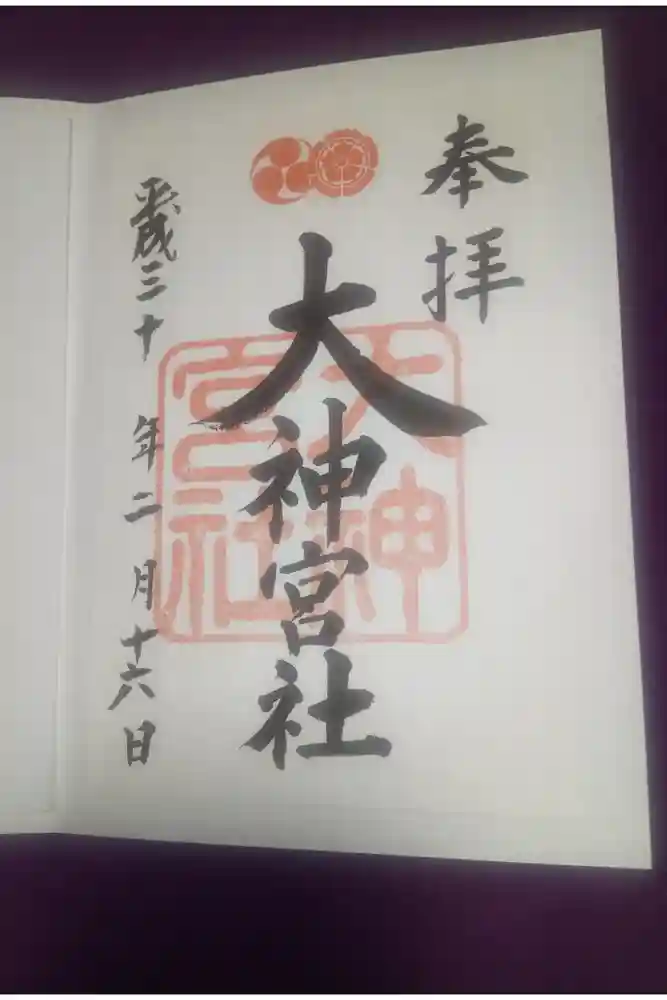 奉拝
大神宮社
大神宮社
平成三十年二月十六日